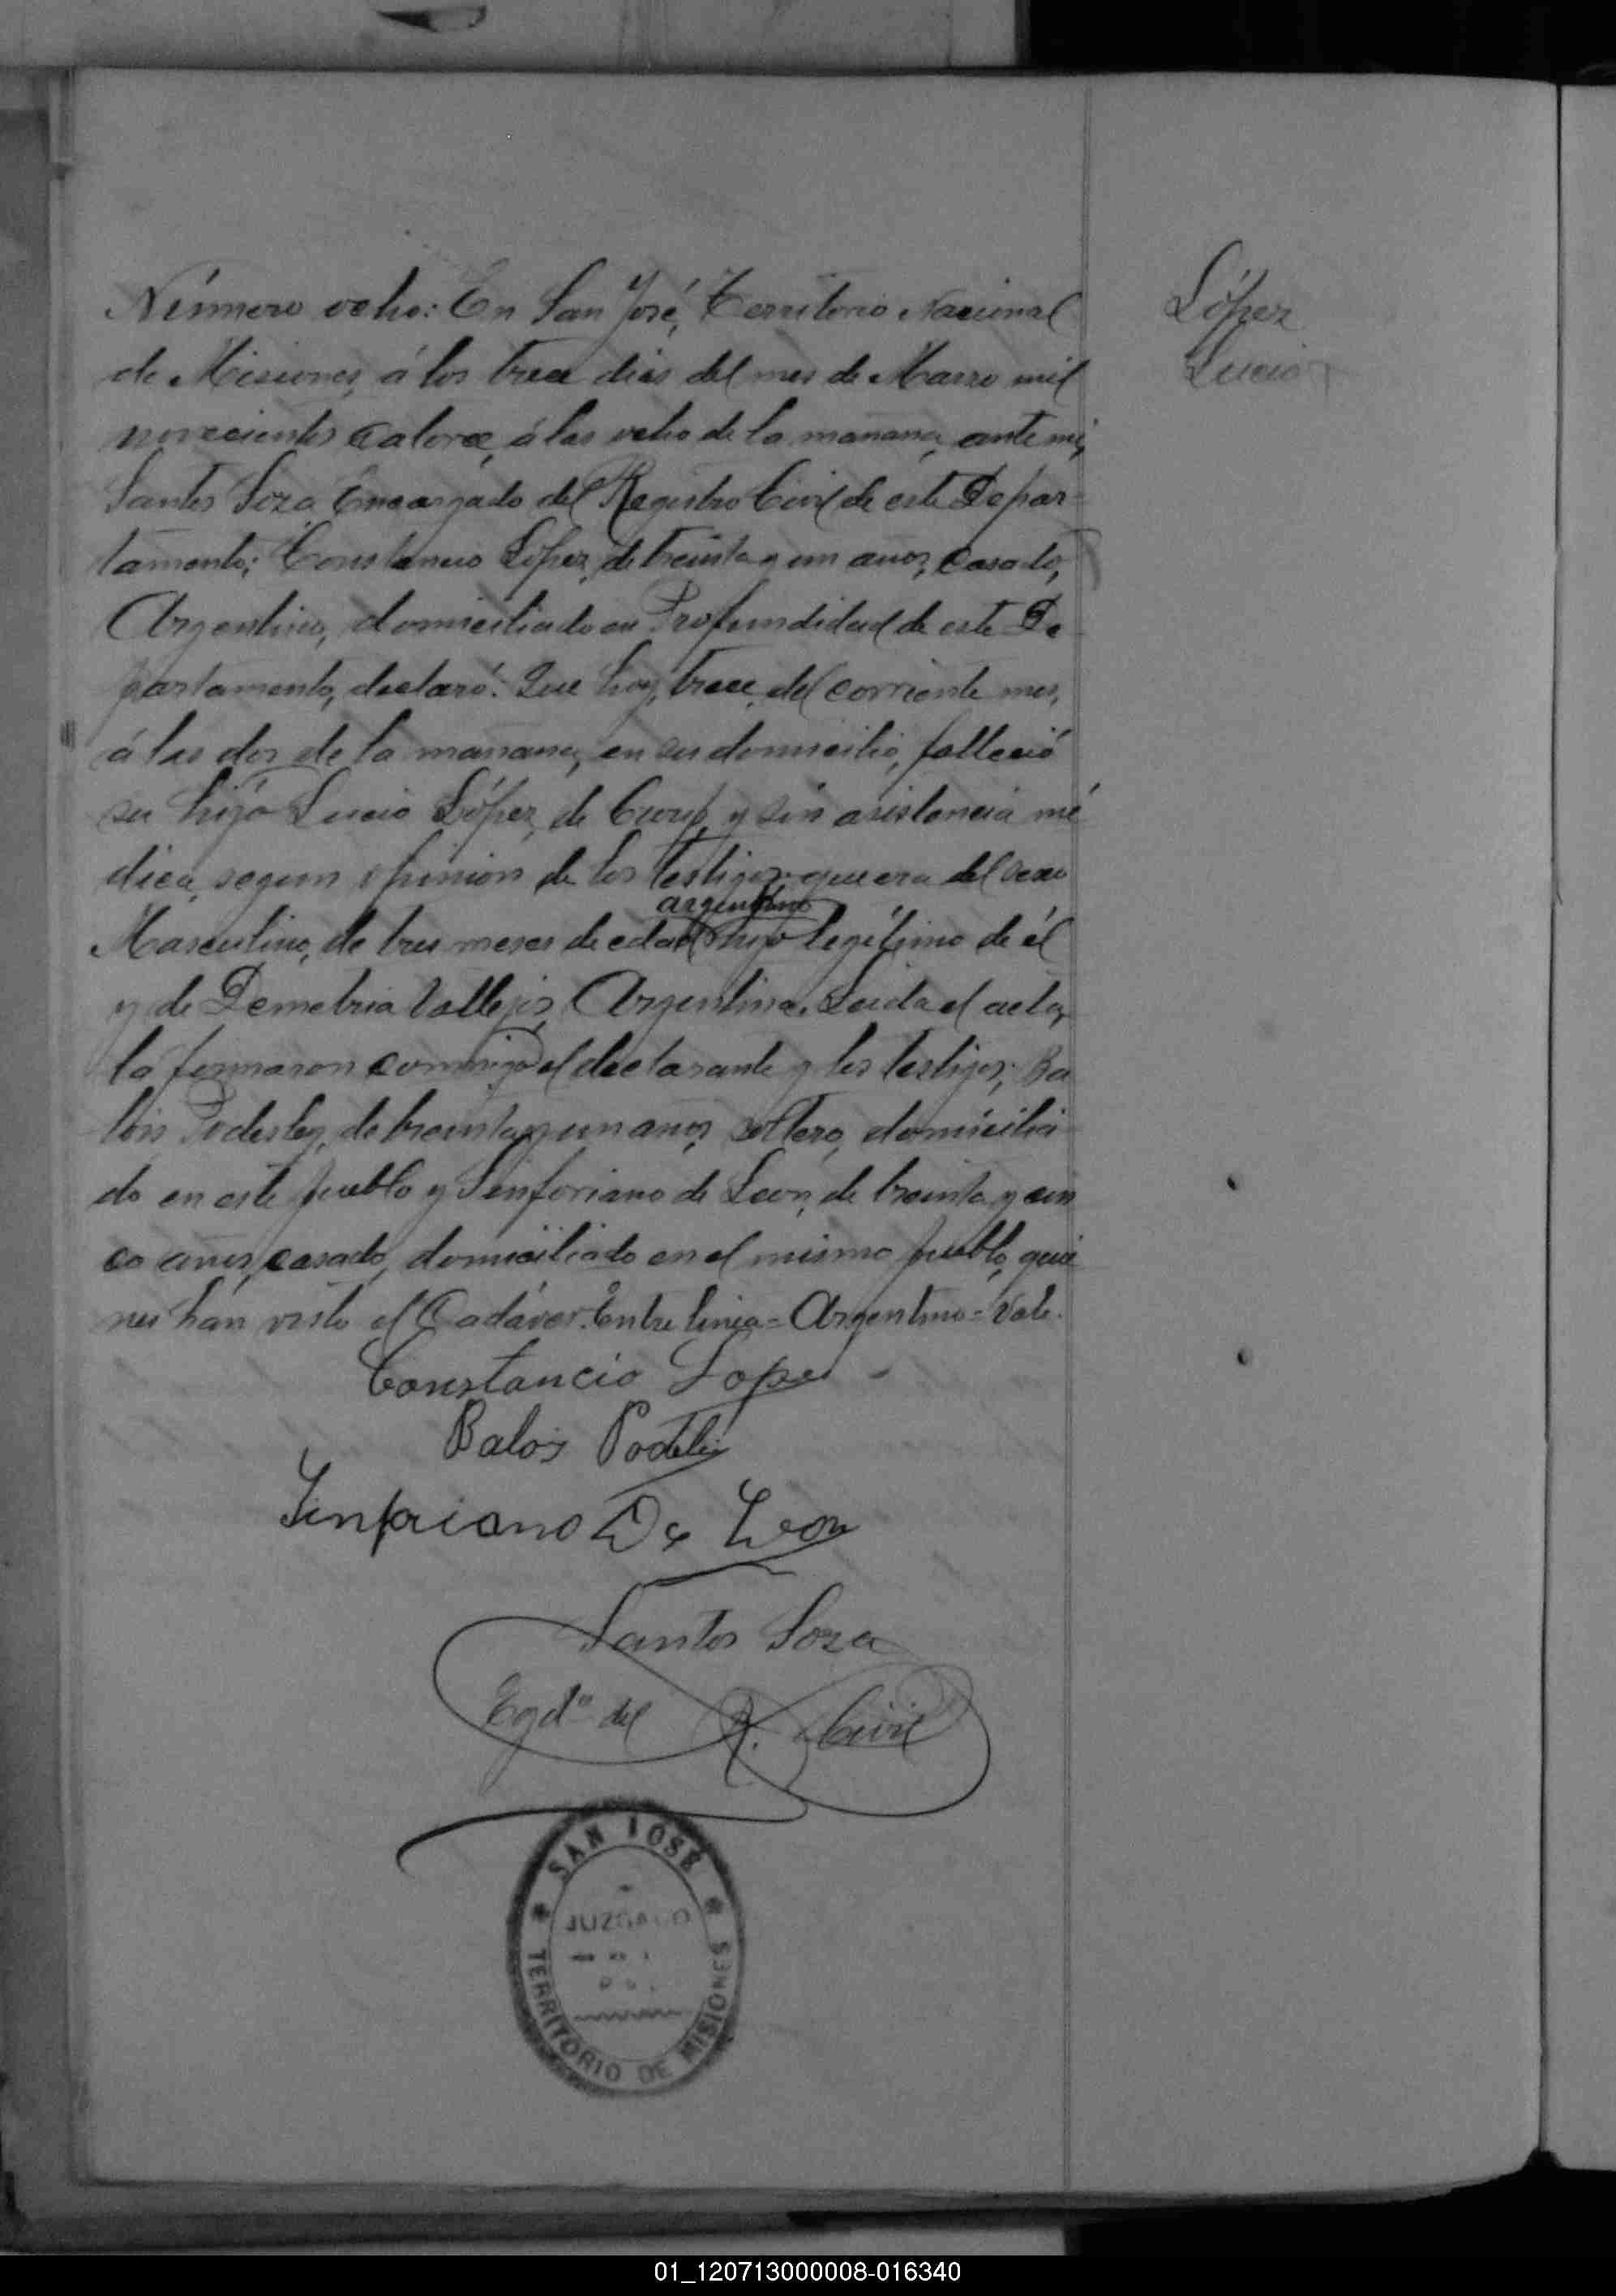 Número ocho: En San José, Territorio Nacional
de Misiones, á los trece dias del mes de Marzo mil
novecientos catorce, á las ocho de la mañana, ante mi,
Santos Soza Encargado del Registro Civil de este Depar-
tamento; Constancio López, de treinta y un años, casado,
Argentino, domiciliado en Profundidad de este De
partamento, declaró: Que hoy, trece, del corriente mes,
á las dos de la mañana, en su domicilio, falleció
su hijo Lucio López, de Croup, y sin asistencia mé
dica, segun opinion de los testigos: que era del sexo
argentino
Masculino, de tres meses de edad hijo legítimo de él
y de Demetria Vallejos, Argentina. Leida el acta,
la firmaron conmigo el declarante y los testigos; Ba
lois de treinta y un años, soltero, domicilia-
do en este pueblo y Sinforiano de Leon, de treinta y cin
co años, casado, domiciliado en el mismo pueblo, quie
nes hán visto el Cadáver. Entre linea = Argentino = Vale.
Constancio Lopes
Balois
Sinforiano De Leon
Santos Soza
Egdo del R. Civil
López
Lucio
SAN JOSÉ
JUZGADO
TERRITORIO DE MISIONES
01_120713000008-016340